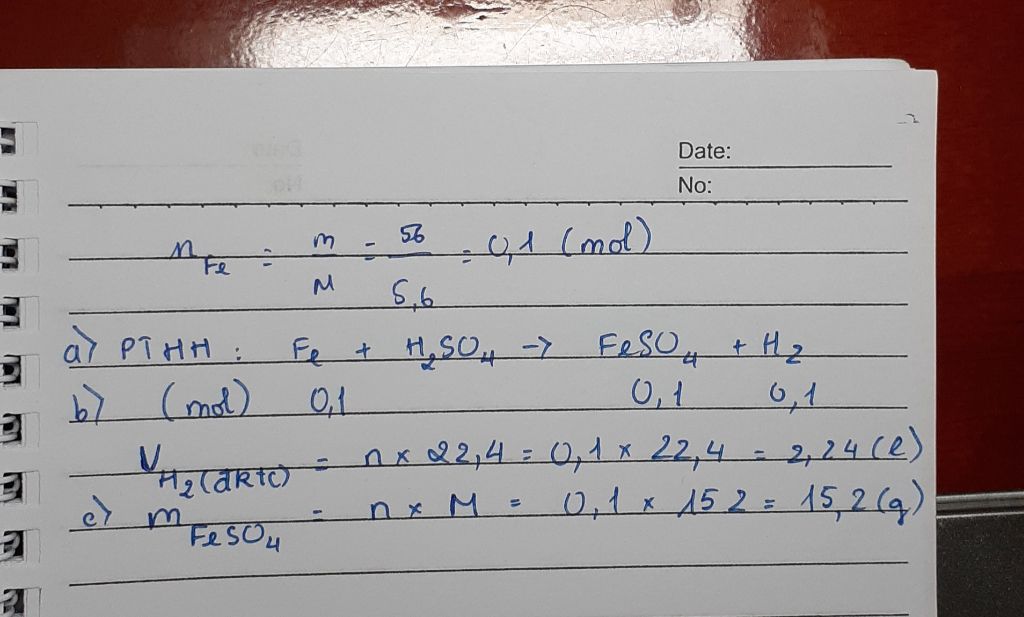 Date:
No:
n Fe = m/M = 56/5,6 = 0,1 (mol)
a) PTHH : Fe + H2SO4 -> FeSO4 + H2
b) (mol) 0,1 0,1 0,1
V H2(đktc) = n x 22,4 = 0,1 x 22,4 = 2,24 (l)
c) m FeSO4 = n x M = 0,1 x 152 = 15,2 (g)